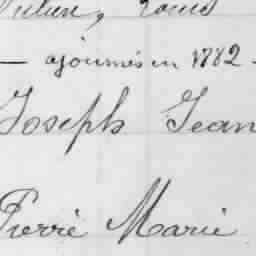 Julien, Louis
— ajournés en 1882 -
Joseph Jean
Pierre Marie